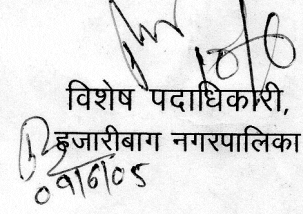 10/6
विशेष पदाधिकारी,
हजारीबाग नगरपालिका
09/6/05